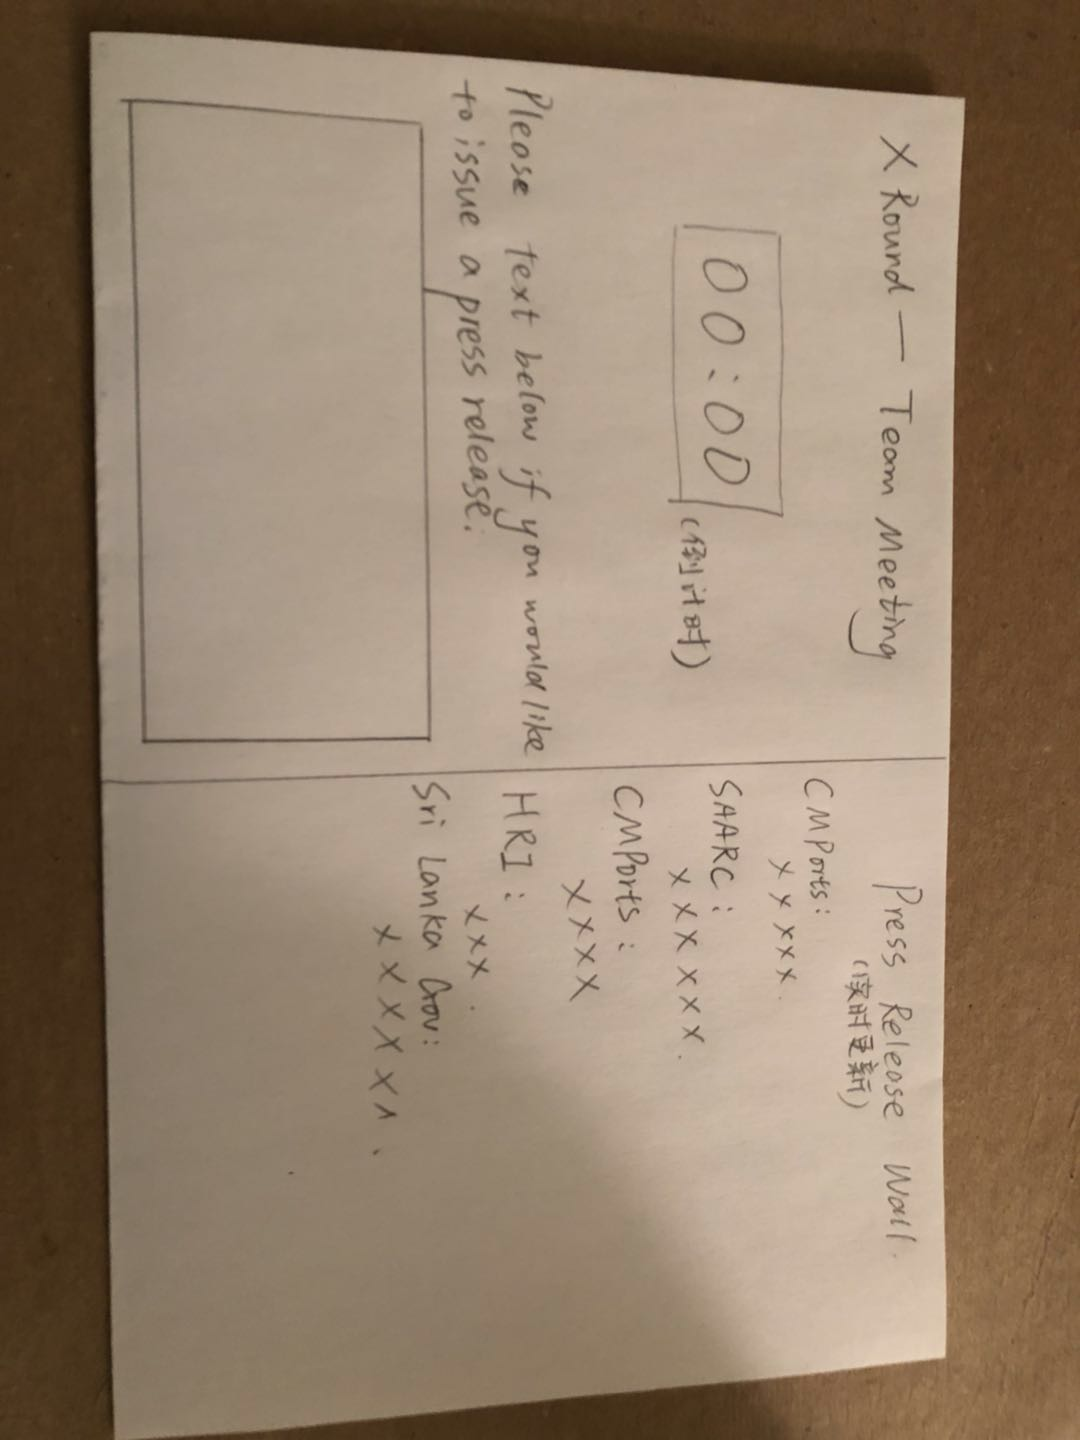 X Round — Team Meeting
00:00
(倒计时)
Please text below if you would like
to issue a press release:
Press Release Wall.
(实时更新)
CMPorts:
x x x x x.
SAARC:
x x x x x x.
CMPorts:
x x x x
HRI:
x x x.
Sri Lanka Gov: